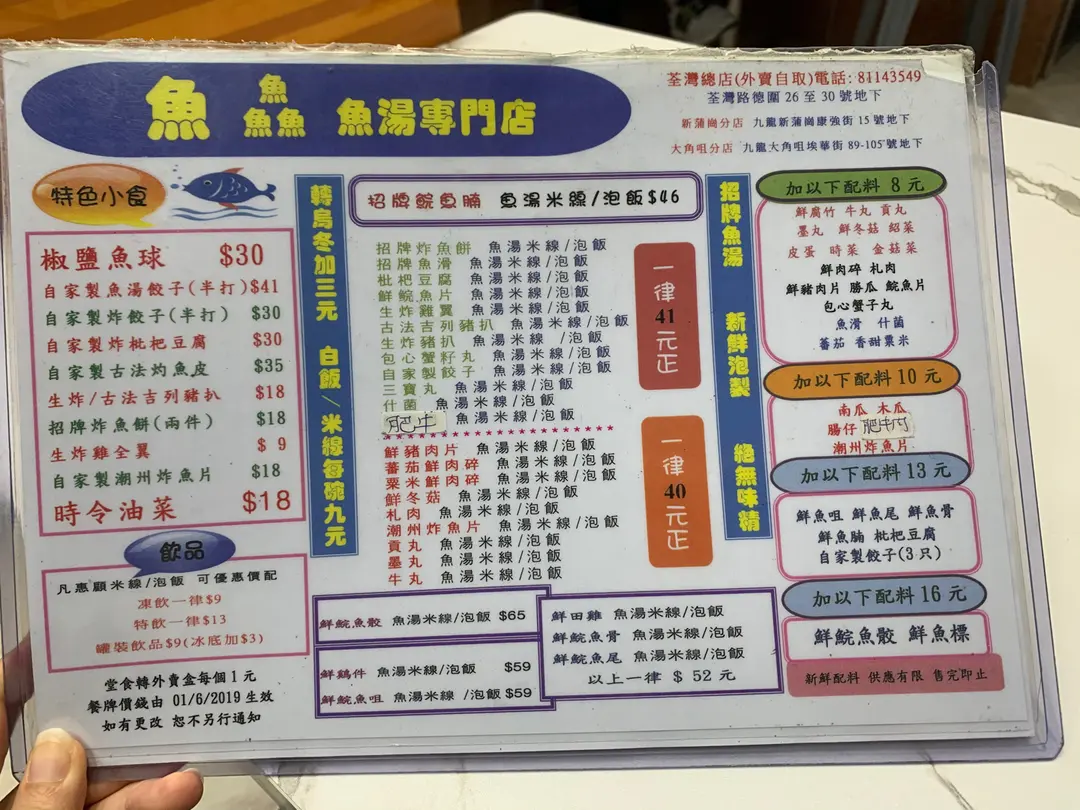 魚 魚魚魚 魚湯專門店
荃灣總店(外賣自取)電話: 81143549
荃灣路德圍 26 至 30 號地下
新蒲崗分店 九龍新蒲崗康強街 15 號地下
大角咀分店 九龍大角咀埃華街 89-105 號地下
特色小食
椒鹽魚球 $30
自家製魚湯餃子(半打) $41
自家製炸餃子(半打) $30
自家製炸枇杷豆腐 $30
自家製古法灼魚皮 $35
生炸/古法吉列豬扒 $18
招牌炸魚餅(兩件) $18
生炸雞全翼 $ 9
自家製潮州炸魚片 $18
時令油菜 $18
飲品
凡惠顧米線/泡飯 可優惠價配
凍飲一律$9
特飲一律$13
罐裝飲品$9(冰底加$3)
堂食轉外賣盒每個1元
餐牌價錢由 01/6/2019 生效
如有更改 恕不另行通知
轉烏冬加三元 白飯/米線每碗九元
招牌鯇魚腩 魚湯米線/泡飯$46
招牌炸魚餅 魚湯米線/泡飯
招牌魚滑 魚湯米線/泡飯
枇杷豆腐 魚湯米線/泡飯
鮮鯇魚片 魚湯米線/泡飯
生炸雞翼 魚湯米線/泡飯
古法吉列豬扒 魚湯米線/泡飯
生炸豬扒 魚湯米線/泡飯
包心蟹籽丸 魚湯米線/泡飯
自家製餃子 魚湯米線/泡飯
三寶丸 魚湯米線/泡飯
什菌 魚湯米線/泡飯
肥牛 魚湯米線/泡飯
一律41元正
鮮豬肉片 魚湯米線/泡飯
蕃茄鮮肉碎 魚湯米線/泡飯
粟米鮮肉碎 魚湯米線/泡飯
鮮冬菇 魚湯米線/泡飯
札肉 魚湯米線/泡飯
潮州炸魚片 魚湯米線/泡飯
貢丸 魚湯米線/泡飯
墨丸 魚湯米線/泡飯
牛丸 魚湯米線/泡飯
一律40元正
鮮鯇魚骰 魚湯米線/泡飯 $65
鮮鷄件 魚湯米線/泡飯 $59
鮮鯇魚咀 魚湯米線/泡飯$59
鮮田雞 魚湯米線/泡飯
鮮鯇魚骨 魚湯米線/泡飯
鮮鯇魚尾 魚湯米線/泡飯
以上一律 $ 52 元
招牌魚湯 新鮮泡製 絕無味精
加以下配料 8 元
鮮腐竹 牛丸 貢丸
墨丸 鮮冬菇 紹菜
皮蛋 時菜 金菇菜
鮮肉碎 札肉
鮮豬肉片 勝瓜 鯇魚片
包心蟹子丸
魚滑 什菌
蕃茄 香甜粟米
加以下配料 10 元
南瓜 木瓜
腸仔 肥牛
潮州炸魚片
加以下配料 13 元
鮮魚咀 鮮魚尾 鮮魚骨
鮮魚腩 枇杷豆腐
自家製餃子(3 只)
加以下配料 16 元
鮮鯇魚骰 鮮魚標
新鮮配料 供應有限 售完即止